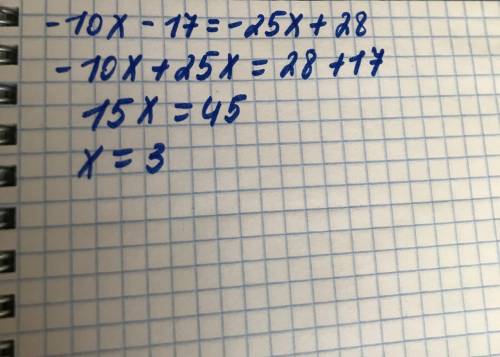 -10x - 17 = -25x + 28
-10x + 25x = 28 + 17
15x = 45
x = 3